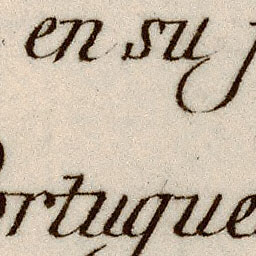 en su
ortugue